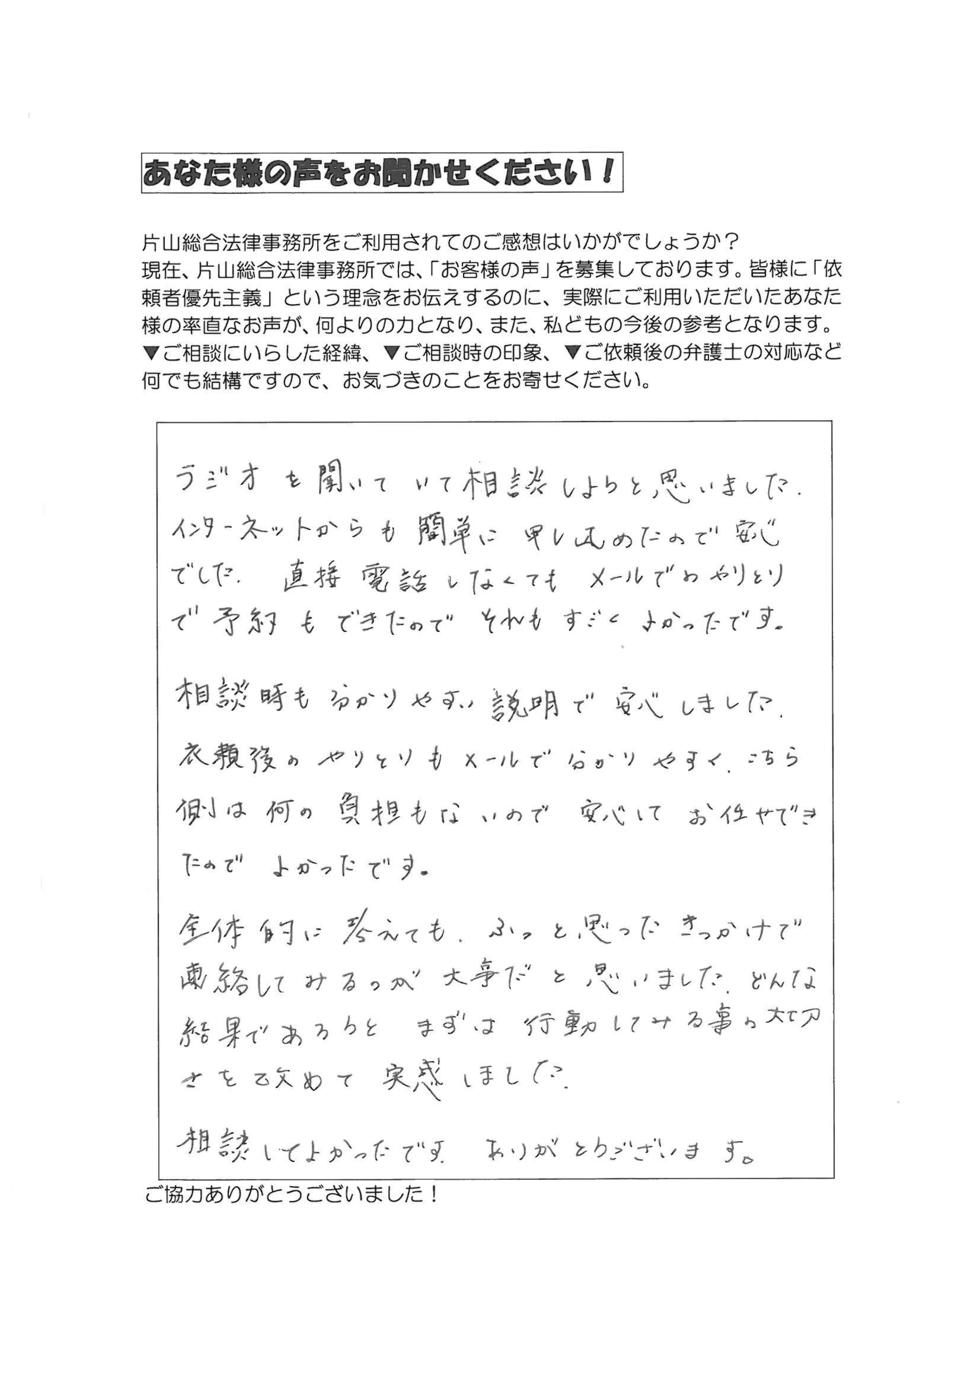 あなた様の声をお聞かせください！
片山総合法律事務所をご利用されてのご感想はいかがでしょうか？
現在、片山総合法律事務所では、「お客様の声」を募集しております。皆様に「依
頼者優先主義」という理念をお伝えするのに、実際にご利用いただいたあなた
様の率直なお声が、何よりの力となり、また、私どもの今後の参考となります。
▼ご相談にいらした経緯、▼ご相談時の印象、▼ご依頼後の弁護士の対応など
何でも結構ですので、お気づきのことをお寄せください。
ラジオを聞いていて相談しようと思いました.
インターネットからも簡単に申し込めたので安心
でした. 直接電話しなくてもメールでのやりとり
で予約もできたのでそれもすごくよかったです。
相談時も分かりやすい説明で安心しました.
依頼後のやりとりもメールで分かりやすく、こちら
側は何の負担もないので安心してお任せでき
たのでよかったです。
全体的に考えても、ふっと思ったきっかけで
連絡してみるのが大事だと思いました. どんな
結果であろうと まずは行動してみる事の大切
さを改めて実感しました.
相談してよかったです ありがとうございます。
ご協力ありがとうございました！